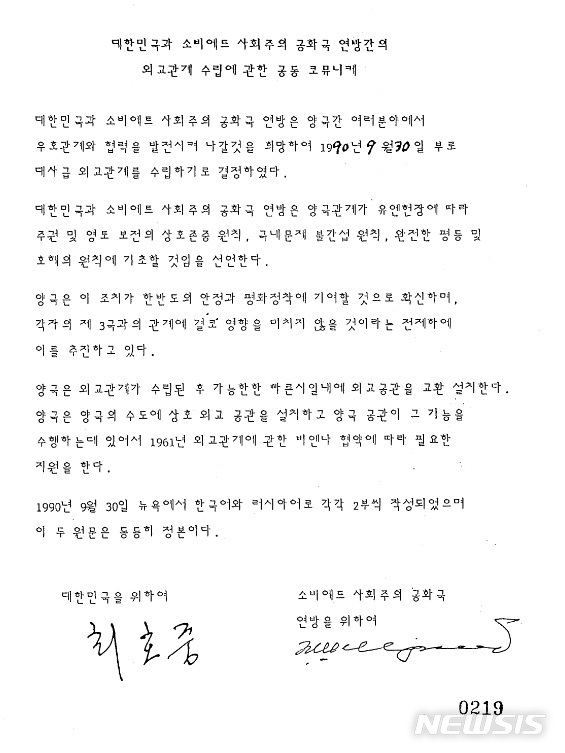 대한민국과 소비에트 사회주의 공화국 연방간의
외교관계 수립에 관한 공동 코뮤니케
대한민국과 소비에트 사회주의 공화국 연방은 양국간 여러분야에서
우호관계와 협력을 발전시켜 나갈것을 희망하여 1990년 9월30일 부로
대사급 외교관계를 수립하기로 결정하였다.
대한민국과 소비에트 사회주의 공화국 연방은 양국관계가 유엔헌장에 따라
주권 및 영토 보전의 상호존중 원칙, 국내문제 불간섭 원칙, 완전한 평등 및
호혜의 원칙에 기초할 것임을 선언한다.
양국은 이 조치가 한반도의 안정과 평화정착에 기여할 것으로 확신하며,
각자의 제 3국과의 관계에 결코 영향을 미치지 않을 것이라는 전제하에
이를 추진하고 있다.
양국은 외교관계가 수립된 후 가능한한 빠른시일내에 외교공관을 교환 설치한다.
양국은 양국의 수도에 상호 외교 공관을 설치하고 양국 공관이 그 기능을
수행하는데 있어서 1961년 외교관계에 관한 비엔나 협약에 따라 필요한
지원을 한다.
1990년 9월 30일 뉴욕에서 한국어와 러시아어로 각각 2부씩 작성되었으며
이 두 원문은 동등히 정본이다.
대한민국을 위하여
최호중
소비에트 사회주의 공화국
연방을 위하여
0219
NEWSIS